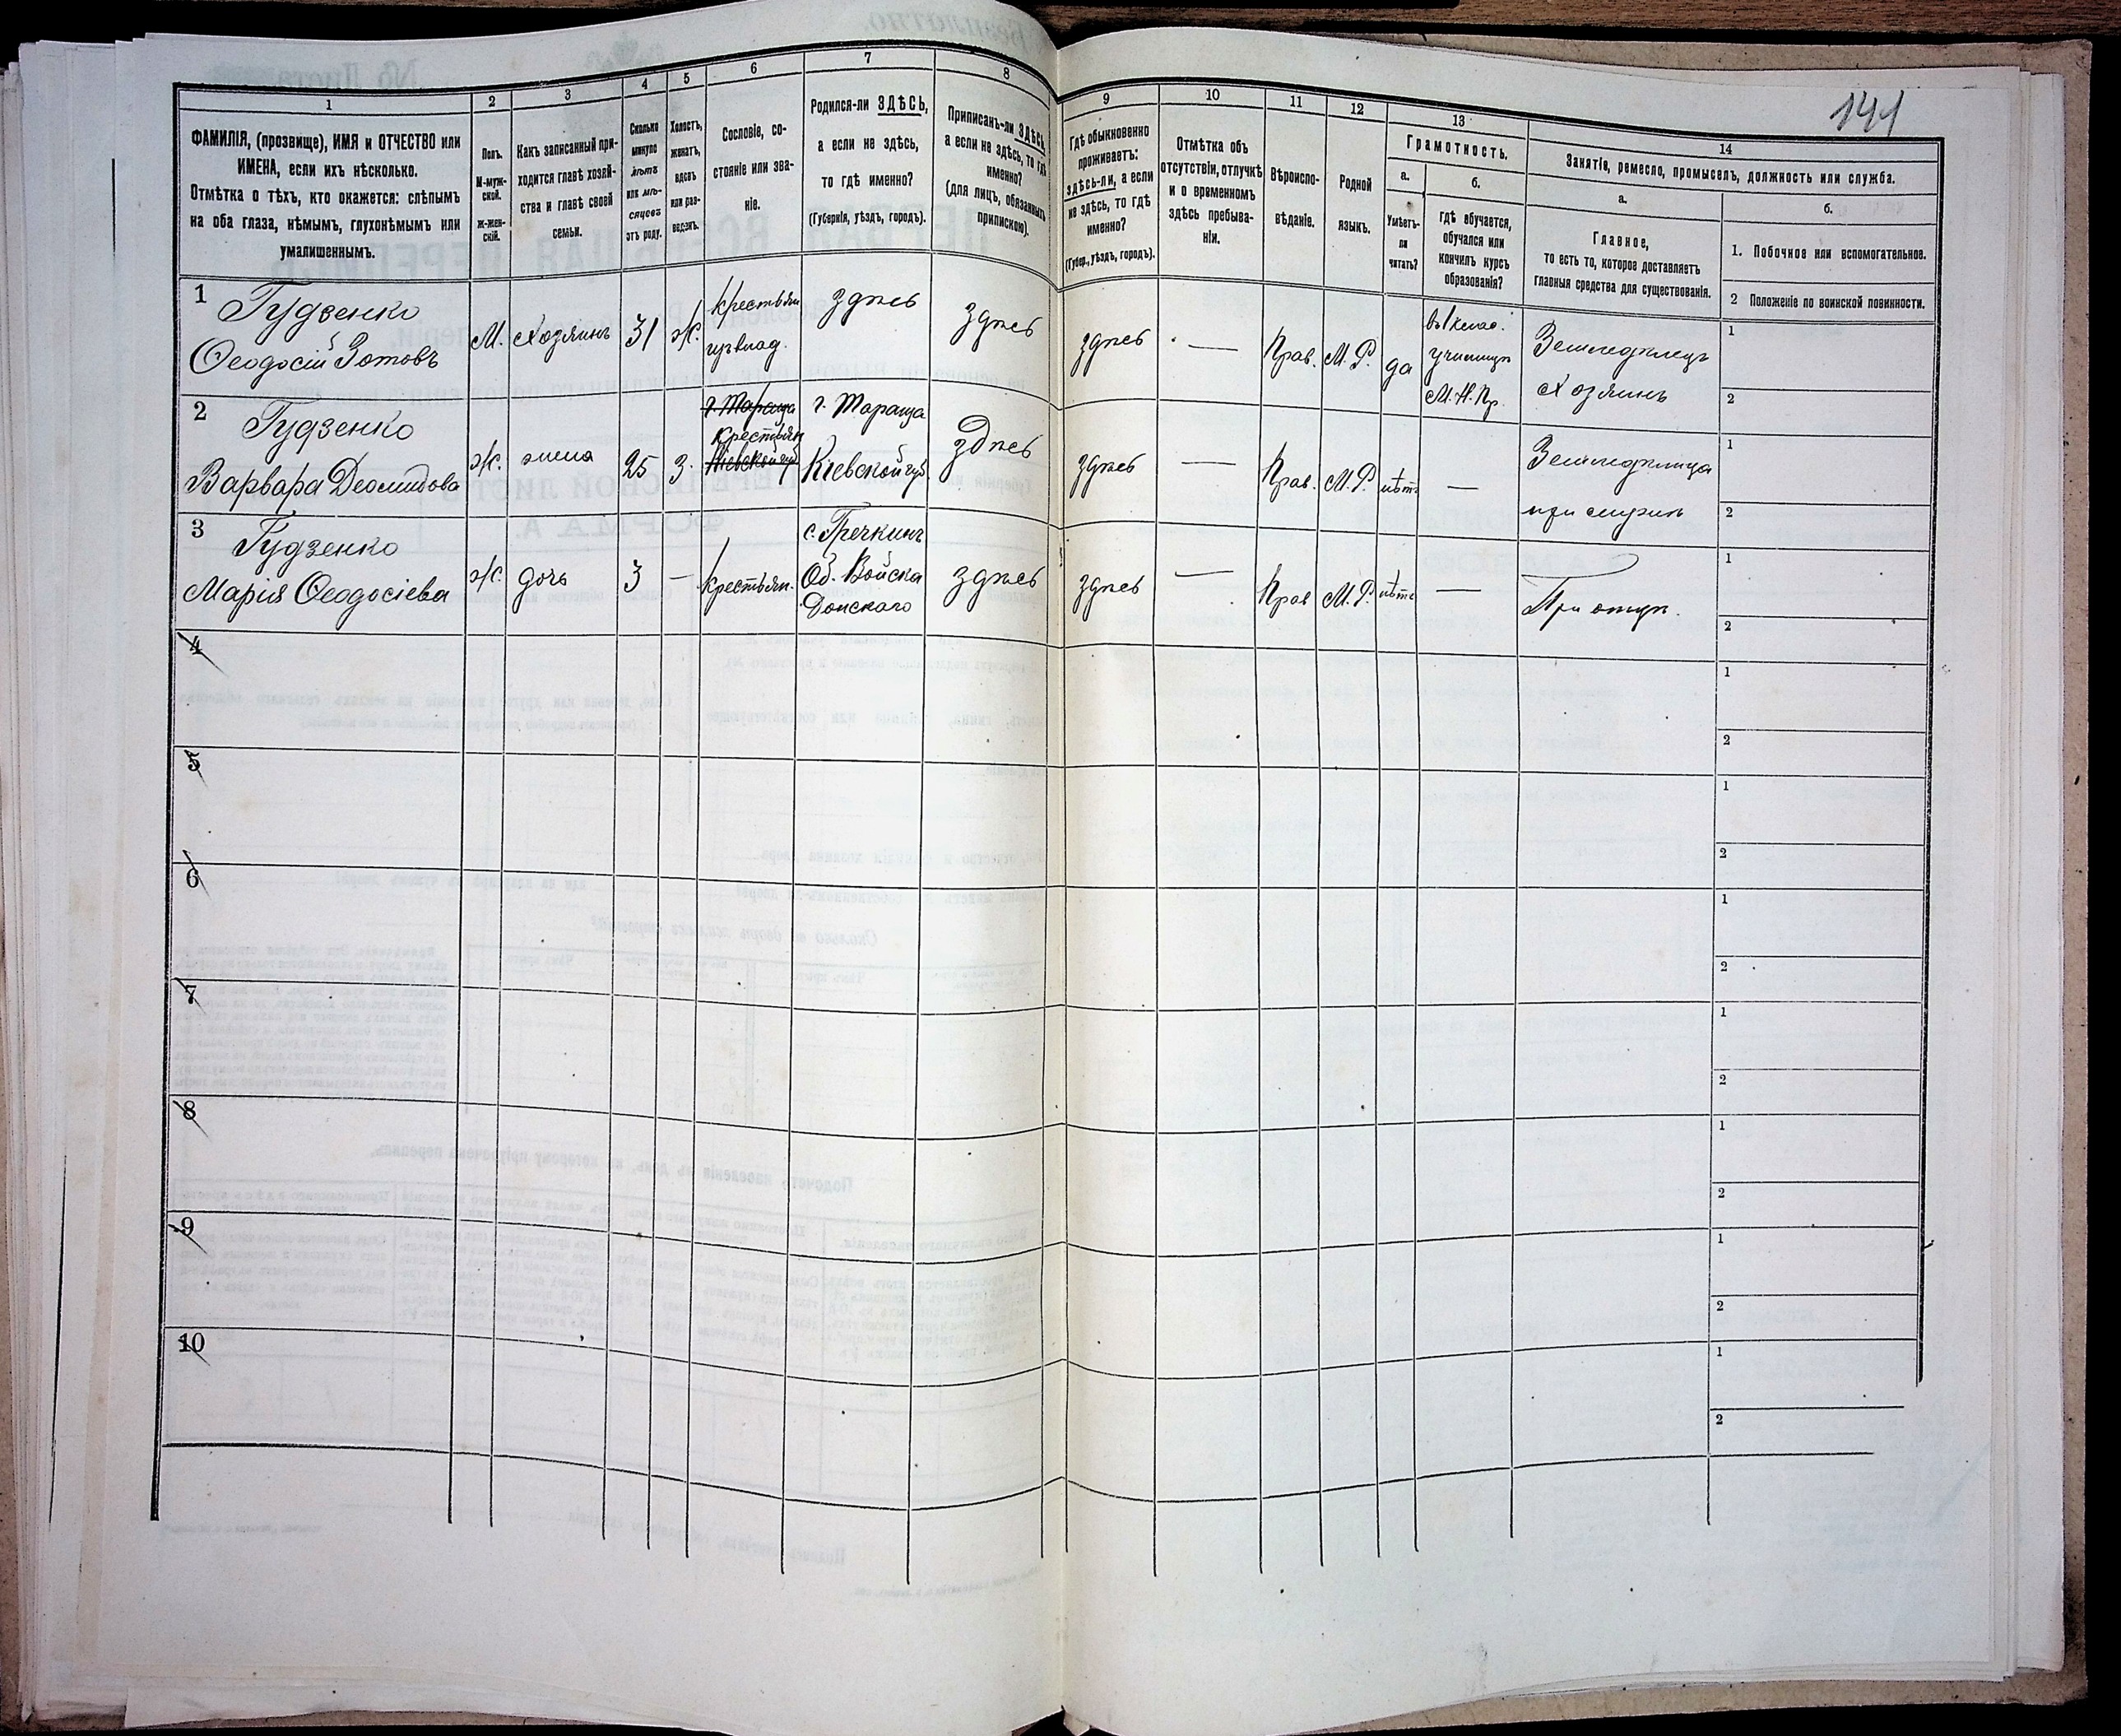 141
1
2
3
4
5
6
7
8
9
10
11
12
13
14
ФАМИЛІЯ, (прозвище), ИМЯ и ОТЧЕСТВО или
ИМЕНА, если ихъ нѣсколько.
Отмѣтка о тѣхъ, кто окажется: слѣпымъ
на оба глаза, нѣмымъ, глухонѣмымъ или
умалишеннымъ.
Полъ.
М-муж-
ской.
ж-жен-
скій.
Какъ записанный при-
ходится главѣ хозяй-
ства и главѣ своей
семьи.
Сколько
минуло
лѣтъ
или мѣ-
сяцевъ
отъ роду.
Холостъ,
женатъ,
вдовъ
или раз-
веденъ.
Сословіе, со-
стояніе или зва-
ніе.
Родился-ли ЗДѢСЬ,
а если не здѣсь,
то гдѣ именно?
(Губернія, уѣздъ, городъ).
Приписанъ-ли ЗДѢСЬ,
а если не здѣсь, то гдѣ
именно?
(для лицъ, обязанныхъ
припискою).
Гдѣ обыкновенно
проживаетъ:
здѣсь-ли, а если
не здѣсь, то гдѣ
именно?
(Губер., уѣздъ, городъ).
Отмѣтка объ
отсутствіи, отлучкѣ
и о временномъ
здѣсь пребыва-
ніи.
Вѣроиспо-
вѣданіе.
Родной
языкъ.
Грамотность.
а.
Умѣетъ-
ли
читать?
б.
гдѣ обучается,
обучался или
кончилъ курсъ
образованія?
Занятія, ремесло, промыселъ, должность или служба.
а.
Главное,
то есть то, которое доставляетъ
главныя средства для существованія.
б.
1. Побочное или вспомогательное.
2 Положеніе по воинской повинности.
1
Гудзенко
Ѳеодосій Зотовъ
М.
Хозяинъ
31
ж.
Крестьян
здѣсь
здѣсь
здѣсь
—
Прав.
М. Р.
да
въ 1 класс.
училищѣ
М. Н. Пр.
Земледѣлецъ
Хозяинъ
1
2
2
Гудзенко
Варвара Деомидова
ж.
жена
25
З.
г. Тараща
Крестьян
Кіевской губ
г. Тараща
Кіевской губ.
здѣсь
здѣсь
—
Прав.
М. Р.
нѣтъ
—
Земледѣлица
1
2
3
Гудзенко
Марія Ѳеодосіева
ж.
дочь
3
—
Крестьян.
с. Гречкинъ
Об. Войска
Донскаго
здѣсь
здѣсь
—
Прав
М. Р.
нѣтъ
—
При отцѣ.
1
2
4
1
2
5
1
2
6
1
2
7
1
2
8
1
2
9
1
2
10
1
2